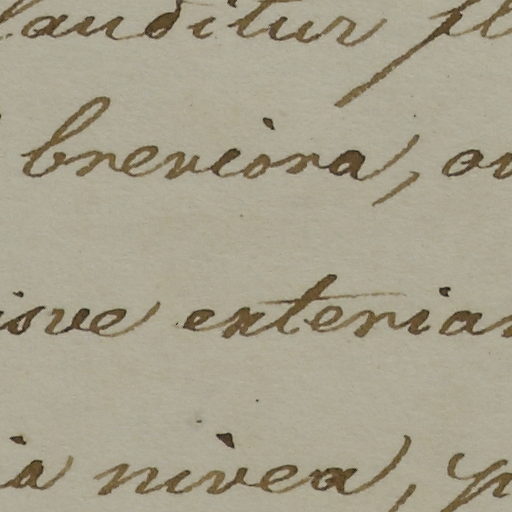 lauditur fl
breviora, ov
isve exterian
ia nivea, p